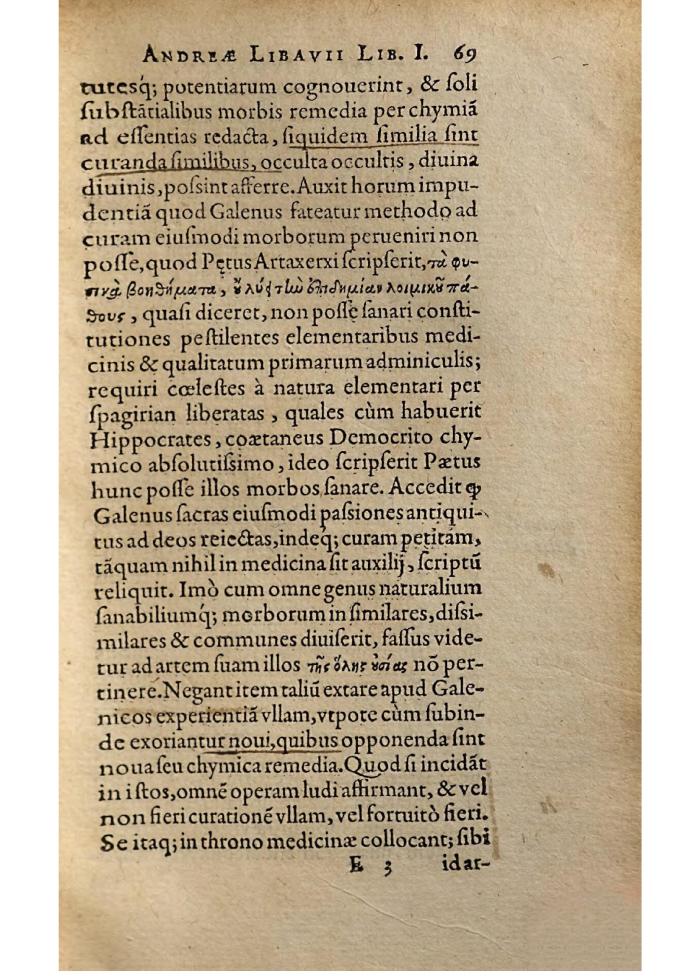 ANDREÆ LIBAVII LIB. I. 69
tutesq́; potentiarum cognouerint, & ſoli
ſubſtãtialibus morbis remedia per chymiã
ad eſſentias redacta, ſiquidem ſimilia ſint
curanda ſimilibus, occulta occultis, diuina
diuinis, poſsint afferre. Auxit horum impu-
dentiã quod Galenus fateatur methodo ad
curam eiuſmodi morborum perueniri non
poſſe, quod Pętus Artaxerxi ſcripſerit, τὰ φυ-
σικὰ βοηθήματα, οὐ λύει τὴν ἐπιδημίαν λοιμικοῦ πά-
θους, quaſi diceret, non poſſe ſanari conſti-
tutiones peſtilentes elementaribus medi-
cinis & qualitatum primarum adminiculis;
requiri cœleſtes à natura elementari per
ſpagirian liberatas, quales cùm habuerit
Hippocrates, coætaneus Democrito chy-
mico abſolutiſsimo, ideo ſcripſerit Pætus
hunc poſſe illos morbos ſanare. Accedit ꝙ
Galenus ſacras eiuſmodi paſsiones antiqui-
tus ad deos reiectas, indeq́; curam petitam,
tãquam nihil in medicina ſit auxilij, ſcriptũ
reliquit. Imò cum omne genus naturalium
ſanabiliumq́; morborum in ſimilares, diſsi-
milares & communes diuiſerit, faſſus vide-
tur ad artem ſuam illos τῆς ὅλης οὐσίας nõ per-
tinere. Negant item taliũ extare apud Gale-
nicos experientiã vllam, vtpote cùm ſubin-
de exoriantur noui, quibus opponenda ſint
noua ſeu chymica remedia. Quod ſi incidãt
in iſtos, omnẽ operam ludi affirmant, & vel
non fieri curationẽ vllam, vel fortuitò fieri.
Se itaq; in throno medicinæ collocant; ſibi
E 3 id ar-